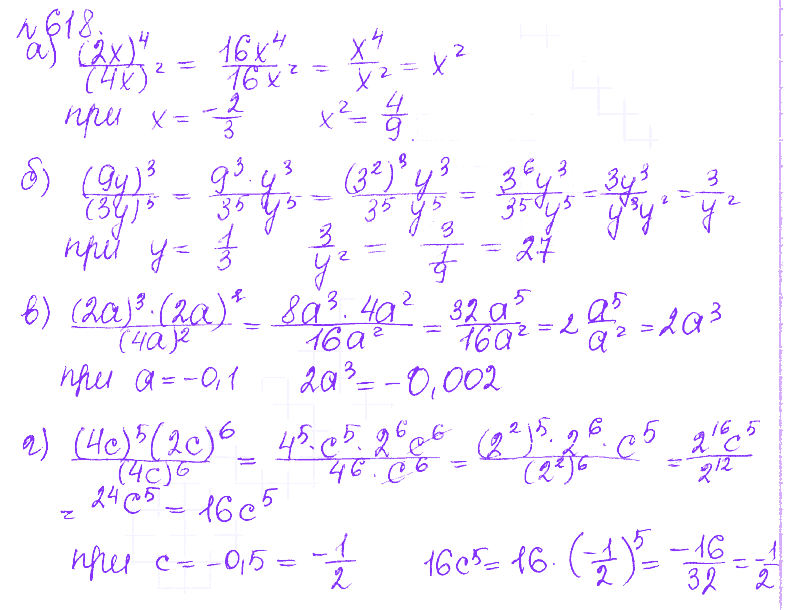 №618.
а) (2x)⁴/(4x)² = 16x⁴/16x² = x⁴/x² = x²
при x = -2/3 x² = 4/9
б) (9y)³/(3y)⁵ = 9³·y³/3⁵ y⁵ = (3²)³y³/3⁵ y⁵ = 3⁶y³/3⁵ y⁵ = 3y³/y³y² = 3/y²
при y = 1/3 3/y² = 3/(1/9) = 27
в) (2a)³·(2a)²/(4a)² = 8a³·4a²/16a² = 32a⁵/16a² = 2 a⁵/a² = 2a³
при a = -0,1 2a³ = -0,002
г) (4c)⁵(2c)⁶/(4c)⁶ = 4⁵·c⁵·2⁶c⁶/4⁶·c⁶ = (2²)⁵·2⁶·c⁵/(2²)⁶ = 2¹⁶c⁵/2¹²
= 2⁴c⁵ = 16c⁵
при c = -0,5 = -1/2 16c⁵ = 16·(-1/2)⁵ = -16/32 = -1/2